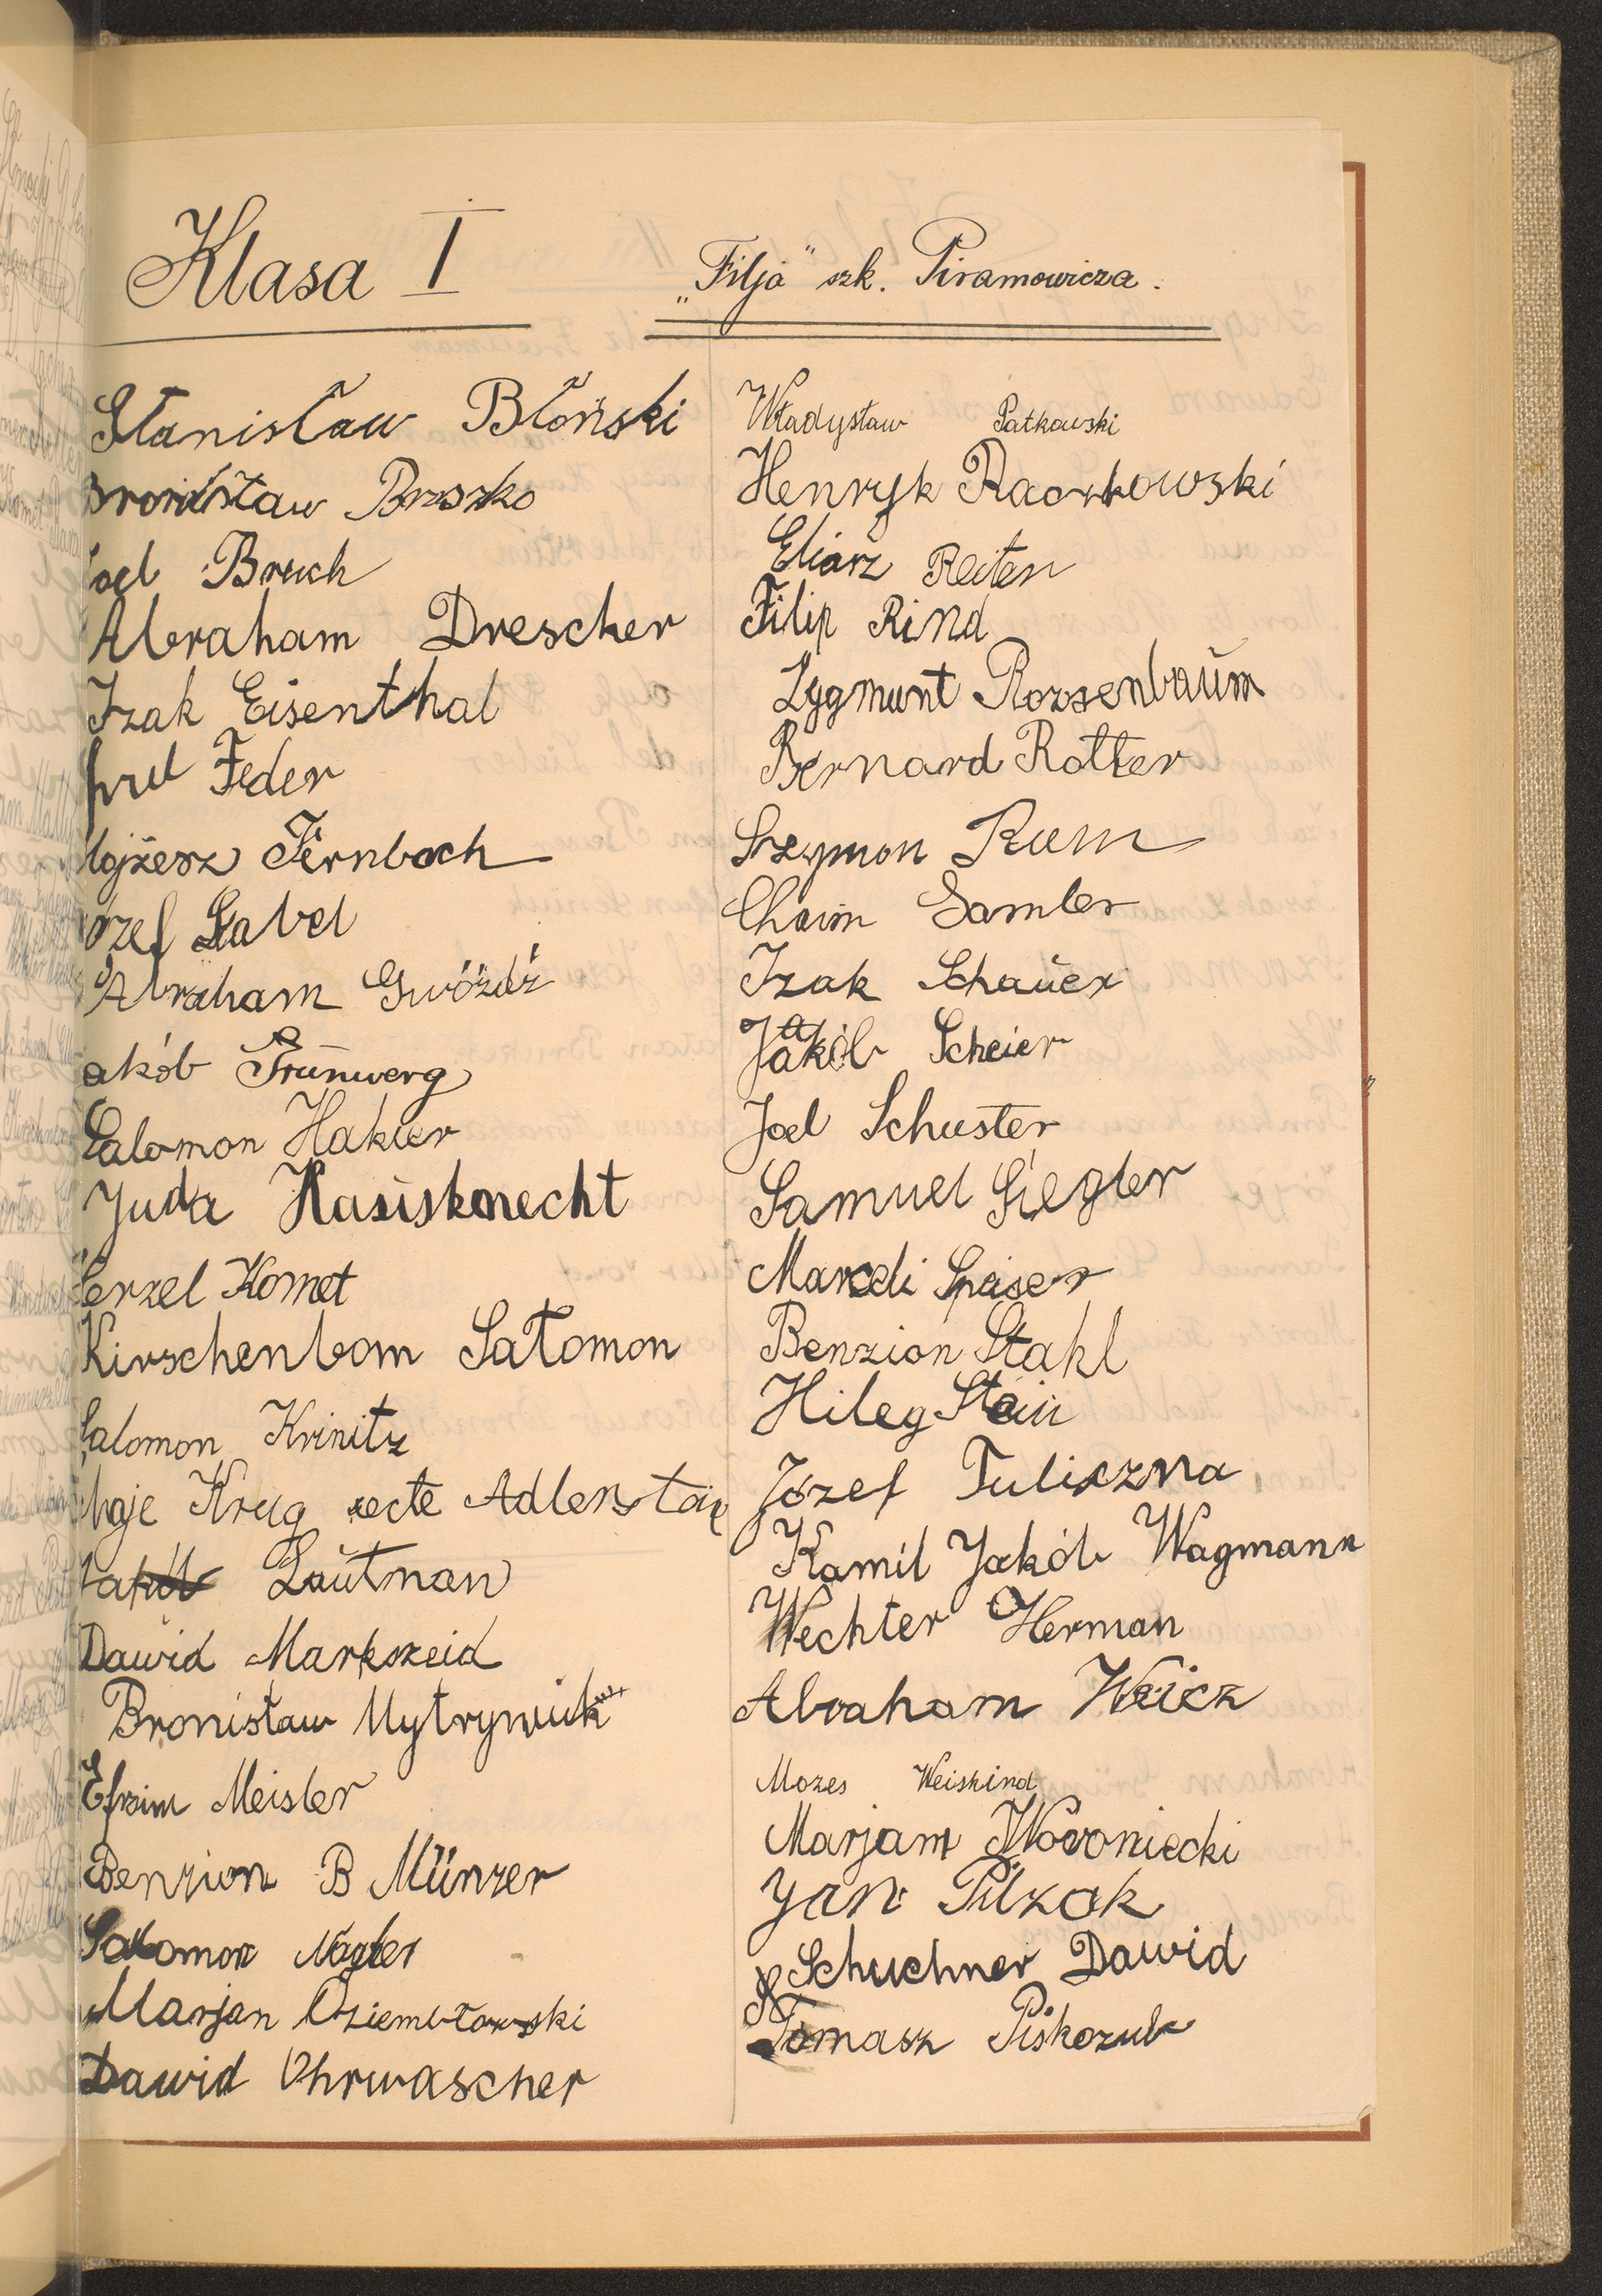 Klasa I
„Filja" szk. Piramowicza.
Stanisław Błoński
Bronisław Brzszko
oel Bruch
Abraham Drescher
Izak Eisenthal
Feder
ojżesz Fernbach
ózef Gabel
Abraham Gwóźdź
akób Grünwerg
Salomon Hakler
Juda Kasisknecht
erzel Komet
Kirschenbom Salomon
Salomon Krinitz
haje Krug recte Adlerstein
Jakób Lautman
Dawid Markszeid
Bronisław Mytrywuk
Efraim Meisler
Benzion B Münzer
Salomon Nagler
Marjan Oziembłowski
Dawid Ohrwascher
Władysław Patkowski
Henryk Raczkowski
Eliarz Reiter
Filip Rind
Zygmunt Rozsenbaum
Bernard Rotter
Szymon Rum
Chaim Samler
Izak Schauer
Jakób Scheier
Joel Schuster
Samuel Siegler
Mardi Speiser
Benzion Stahl
Hileg Stein
Józef Tuliszna
Kamil Jakób Wagmann
Wechter Herman
Abraham Weicz
Mozes Weiskind
Marjam Woroniecki
Jan Pilzak
Schuchner Dawid
Tomasz Piskozub